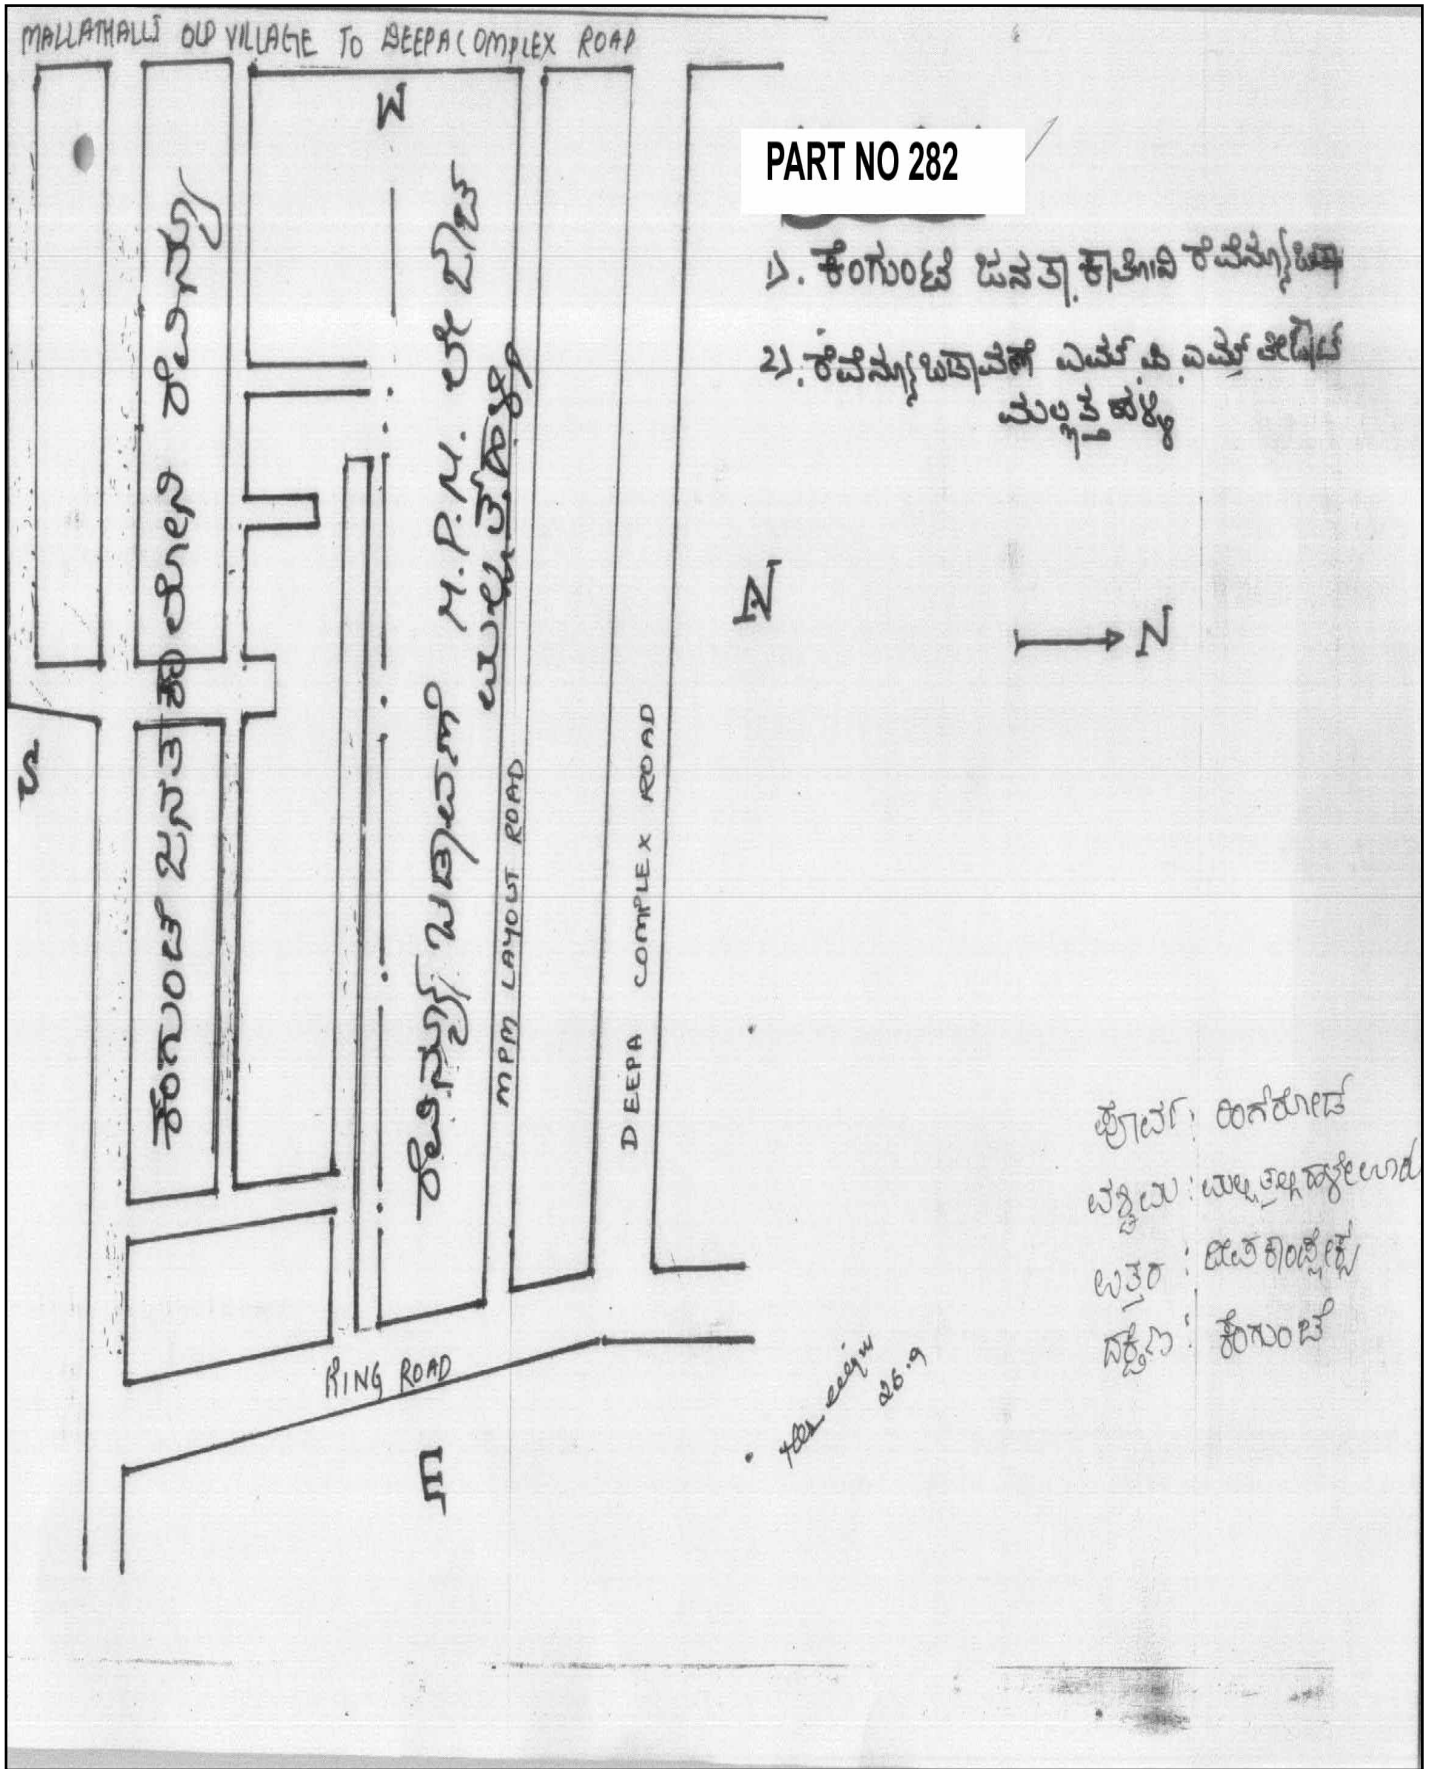 MALLATHALLI OLD VILLAGE TO DEEPA COMPLEX ROAD
W
PART NO 282
1). ಕೆಂಗುಂಟೆ ಜನತಾ ಕಾಲೋನಿ ರೆವೆನ್ಯೂ
2). ರೆವೆನ್ಯೂ ಬಡಾವಣೆ ಎಮ್ ಪಿ ಎಮ್ ಲೇಔಟ್
ಮಲ್ಲತ್ತಹಳ್ಳಿ
ಕೆಂಗುಂಟೆ ಜನತಾ ಕಾಲೋನಿ ರೆವಿನ್ಯೂ
ರೆವಿನ್ಯೂ ಬಡಾವಣೆ M.P.M. ಲೇ ಔಟ್
ಮಲ್ಲತ್ತಹಳ್ಳಿ
MPM LAYOUT ROAD
DEEPA COMPLEX ROAD
N
N
S
ಪೂರ್ವ : ರಿಂಗ್ ರೋಡ್
ಪಶ್ಚಿಮ : ಮಲ್ಲತ್ತಳ್ಳಿ ಹಳೇ ಊರು
ಉತ್ತರ : ದೀಪ ಕಾಂಪ್ಲೇಕ್ಸ್
ದಕ್ಷಿಣ : ಕೆಂಗುಂಟೆ
RING ROAD
26.9
E